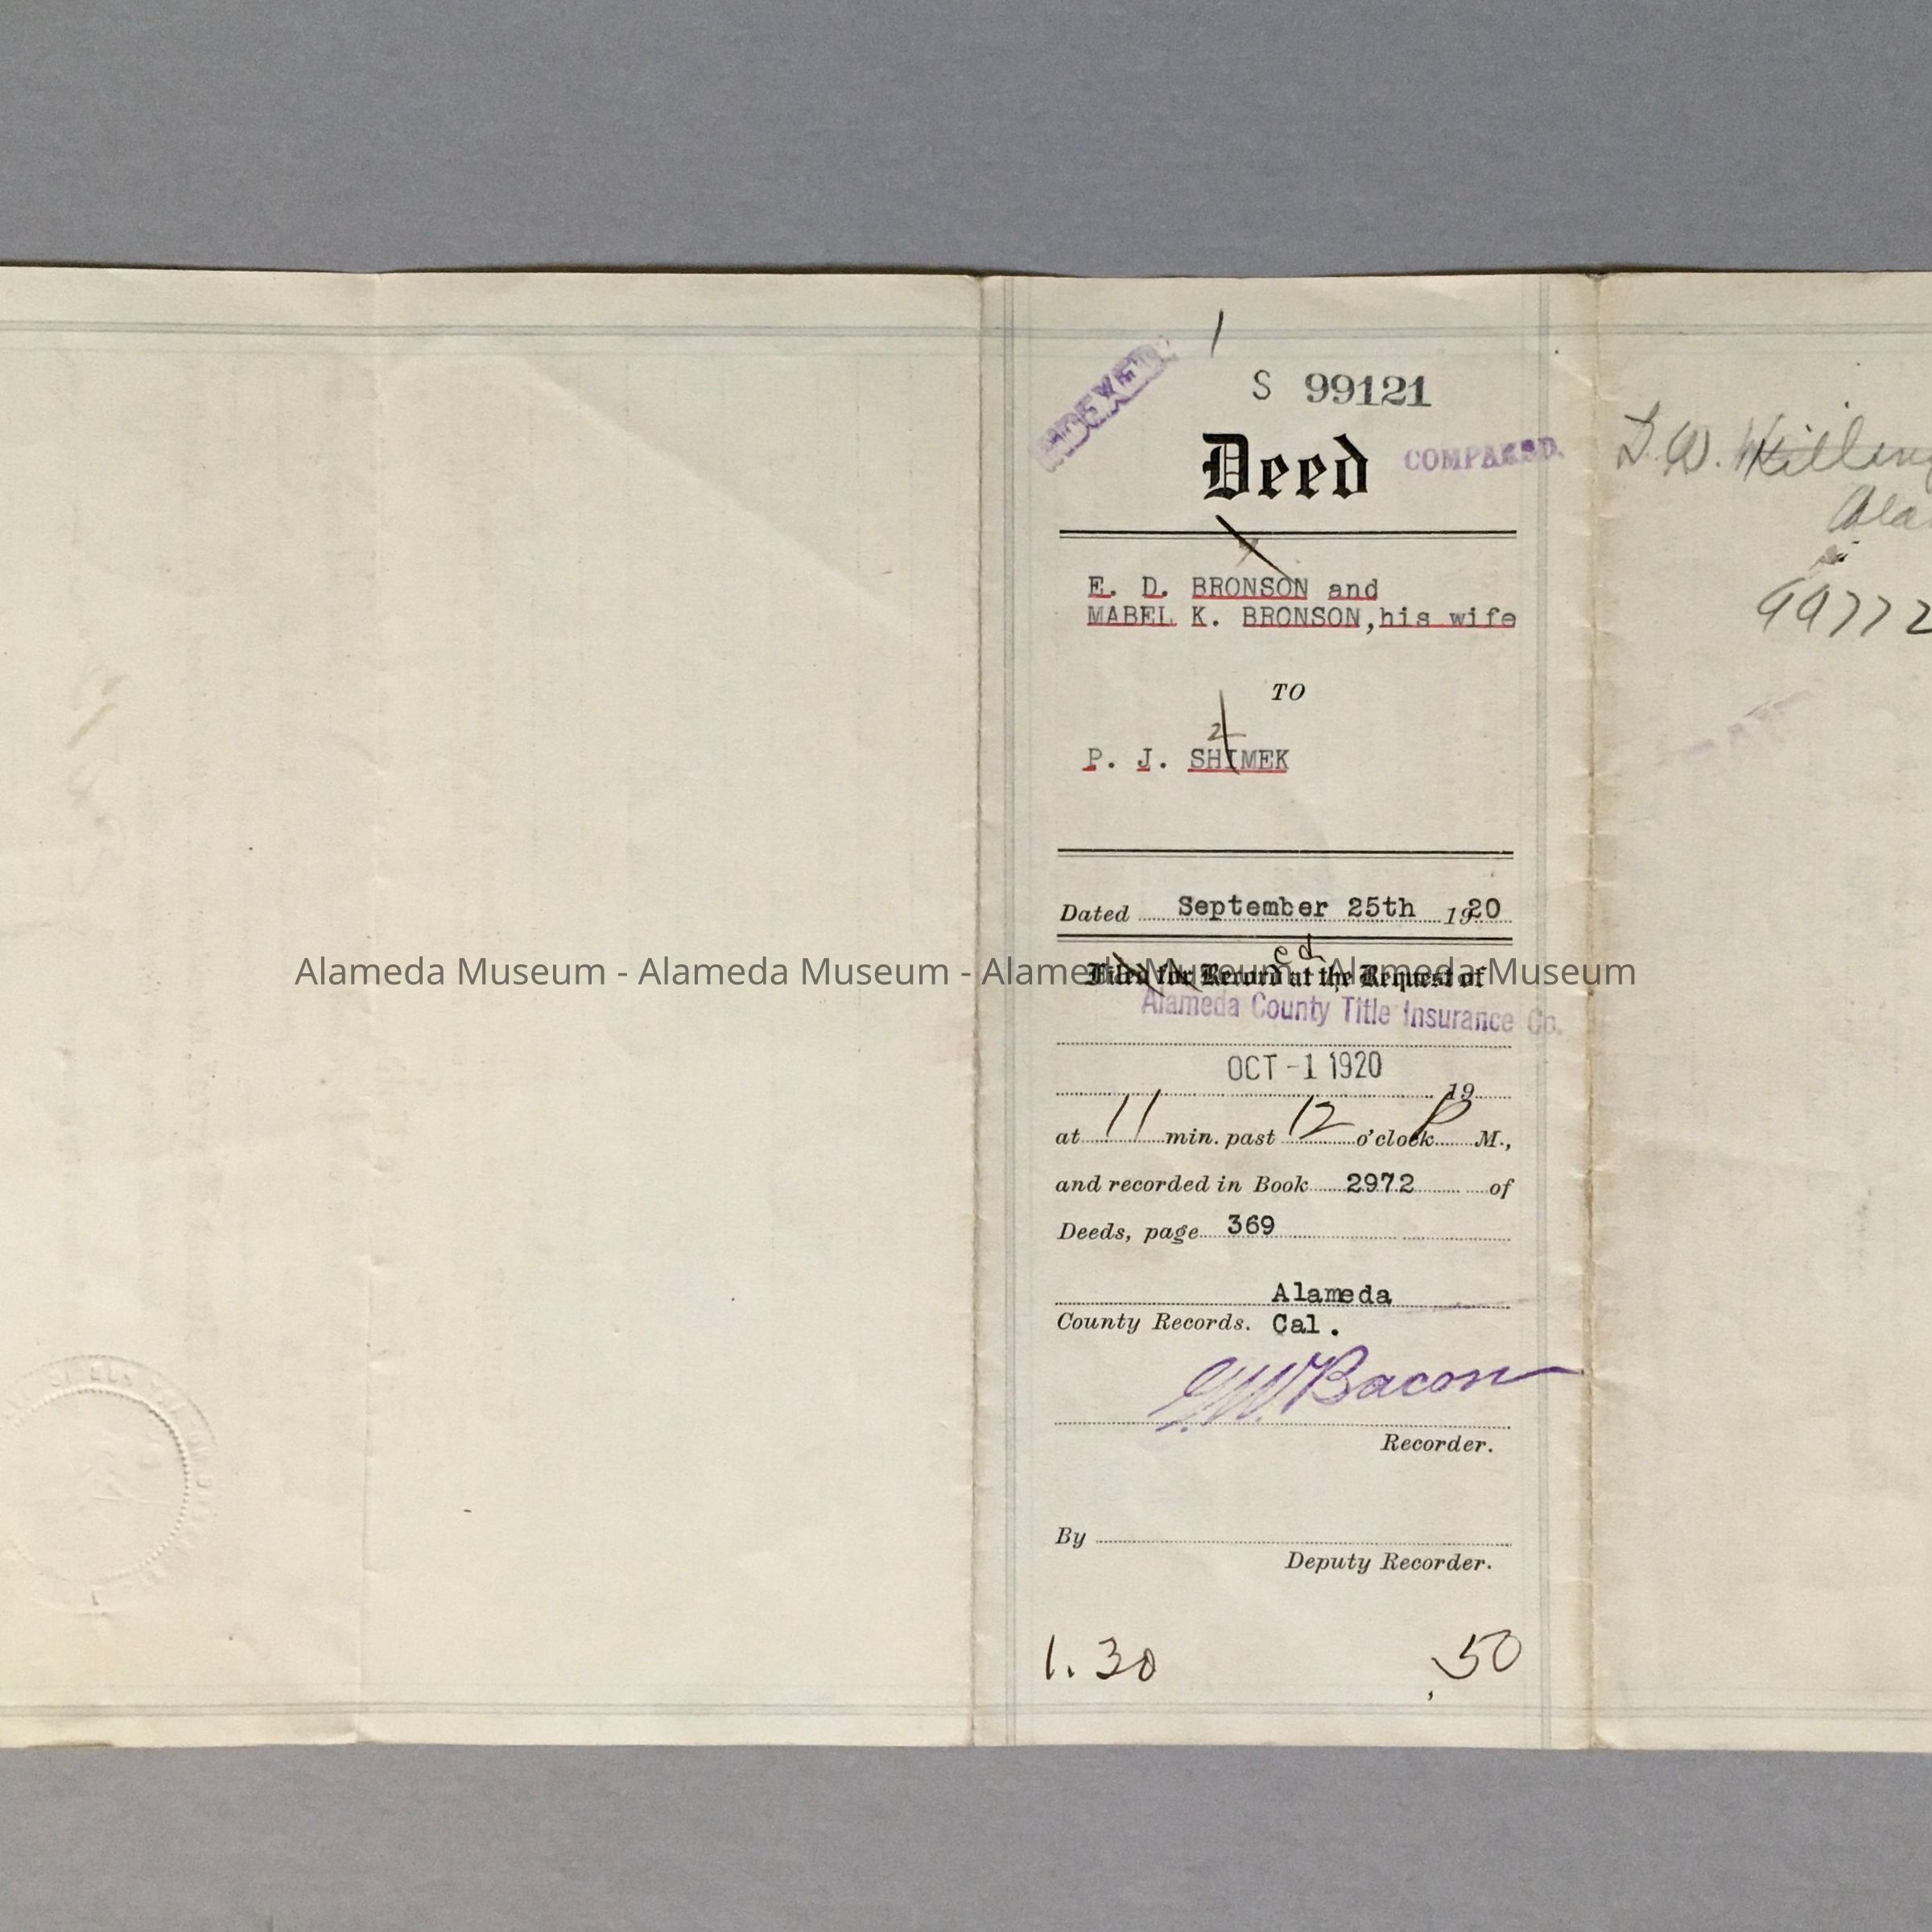 1
INDEXED
S 99121
Deed
COMPARED.
E. D. BRONSON and
MABEL K. BRONSON, his wife
TO
2
P. J. SHIMEK
Dated September 25th 1920
ed
Filed for Record at the Request of
Alameda Museum - Alameda Museum - Alameda Museum - Alameda Museum
Alameda County Title Insurance Co.
OCT -1 1920
19
at 11 min. past 12 o'clock P M.,
and recorded in Book 2972 of
Deeds, page 369
Alameda
County Records. Cal.
G.W. Bacon
Recorder.
By
Deputy Recorder.
1.30 .50
99772